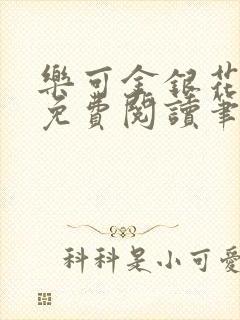 樂可金銀花
免費閱讀筆
科科是小可愛